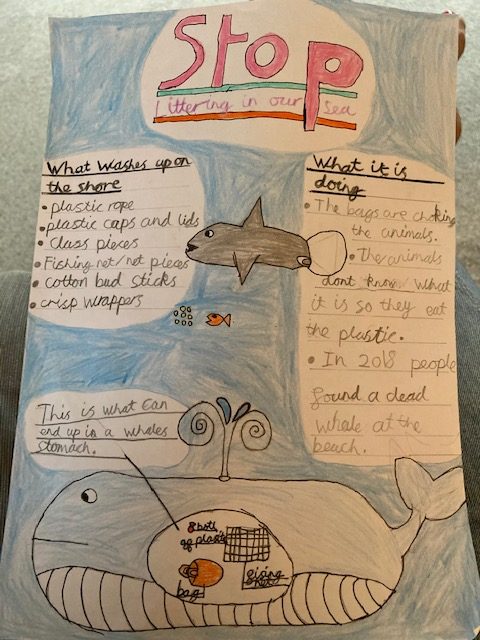 Stop
Littering in our sea
What washes up on
the shore
• plastic rope
• plastic caps and lids
• Glass pieces
• Fishing net/net pieces
• cotton bud sticks
• crisp wrappers
What it is
doing
• The bags are choking
the animals.
• The animals
dont know what
it is so they eat
the plastic.
• In 2018 people
found a dead
whale at the
beach.
This is what Can
end up in a whales
stomach.
of plastic
bag
net